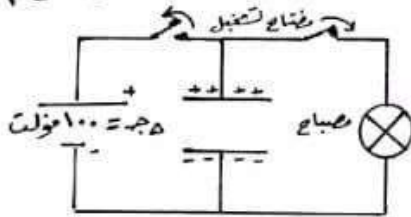 مفتاح تشغيل
+
++ ++
Δجـ = ١٠٠ فولت
مصباح
-
- - - -